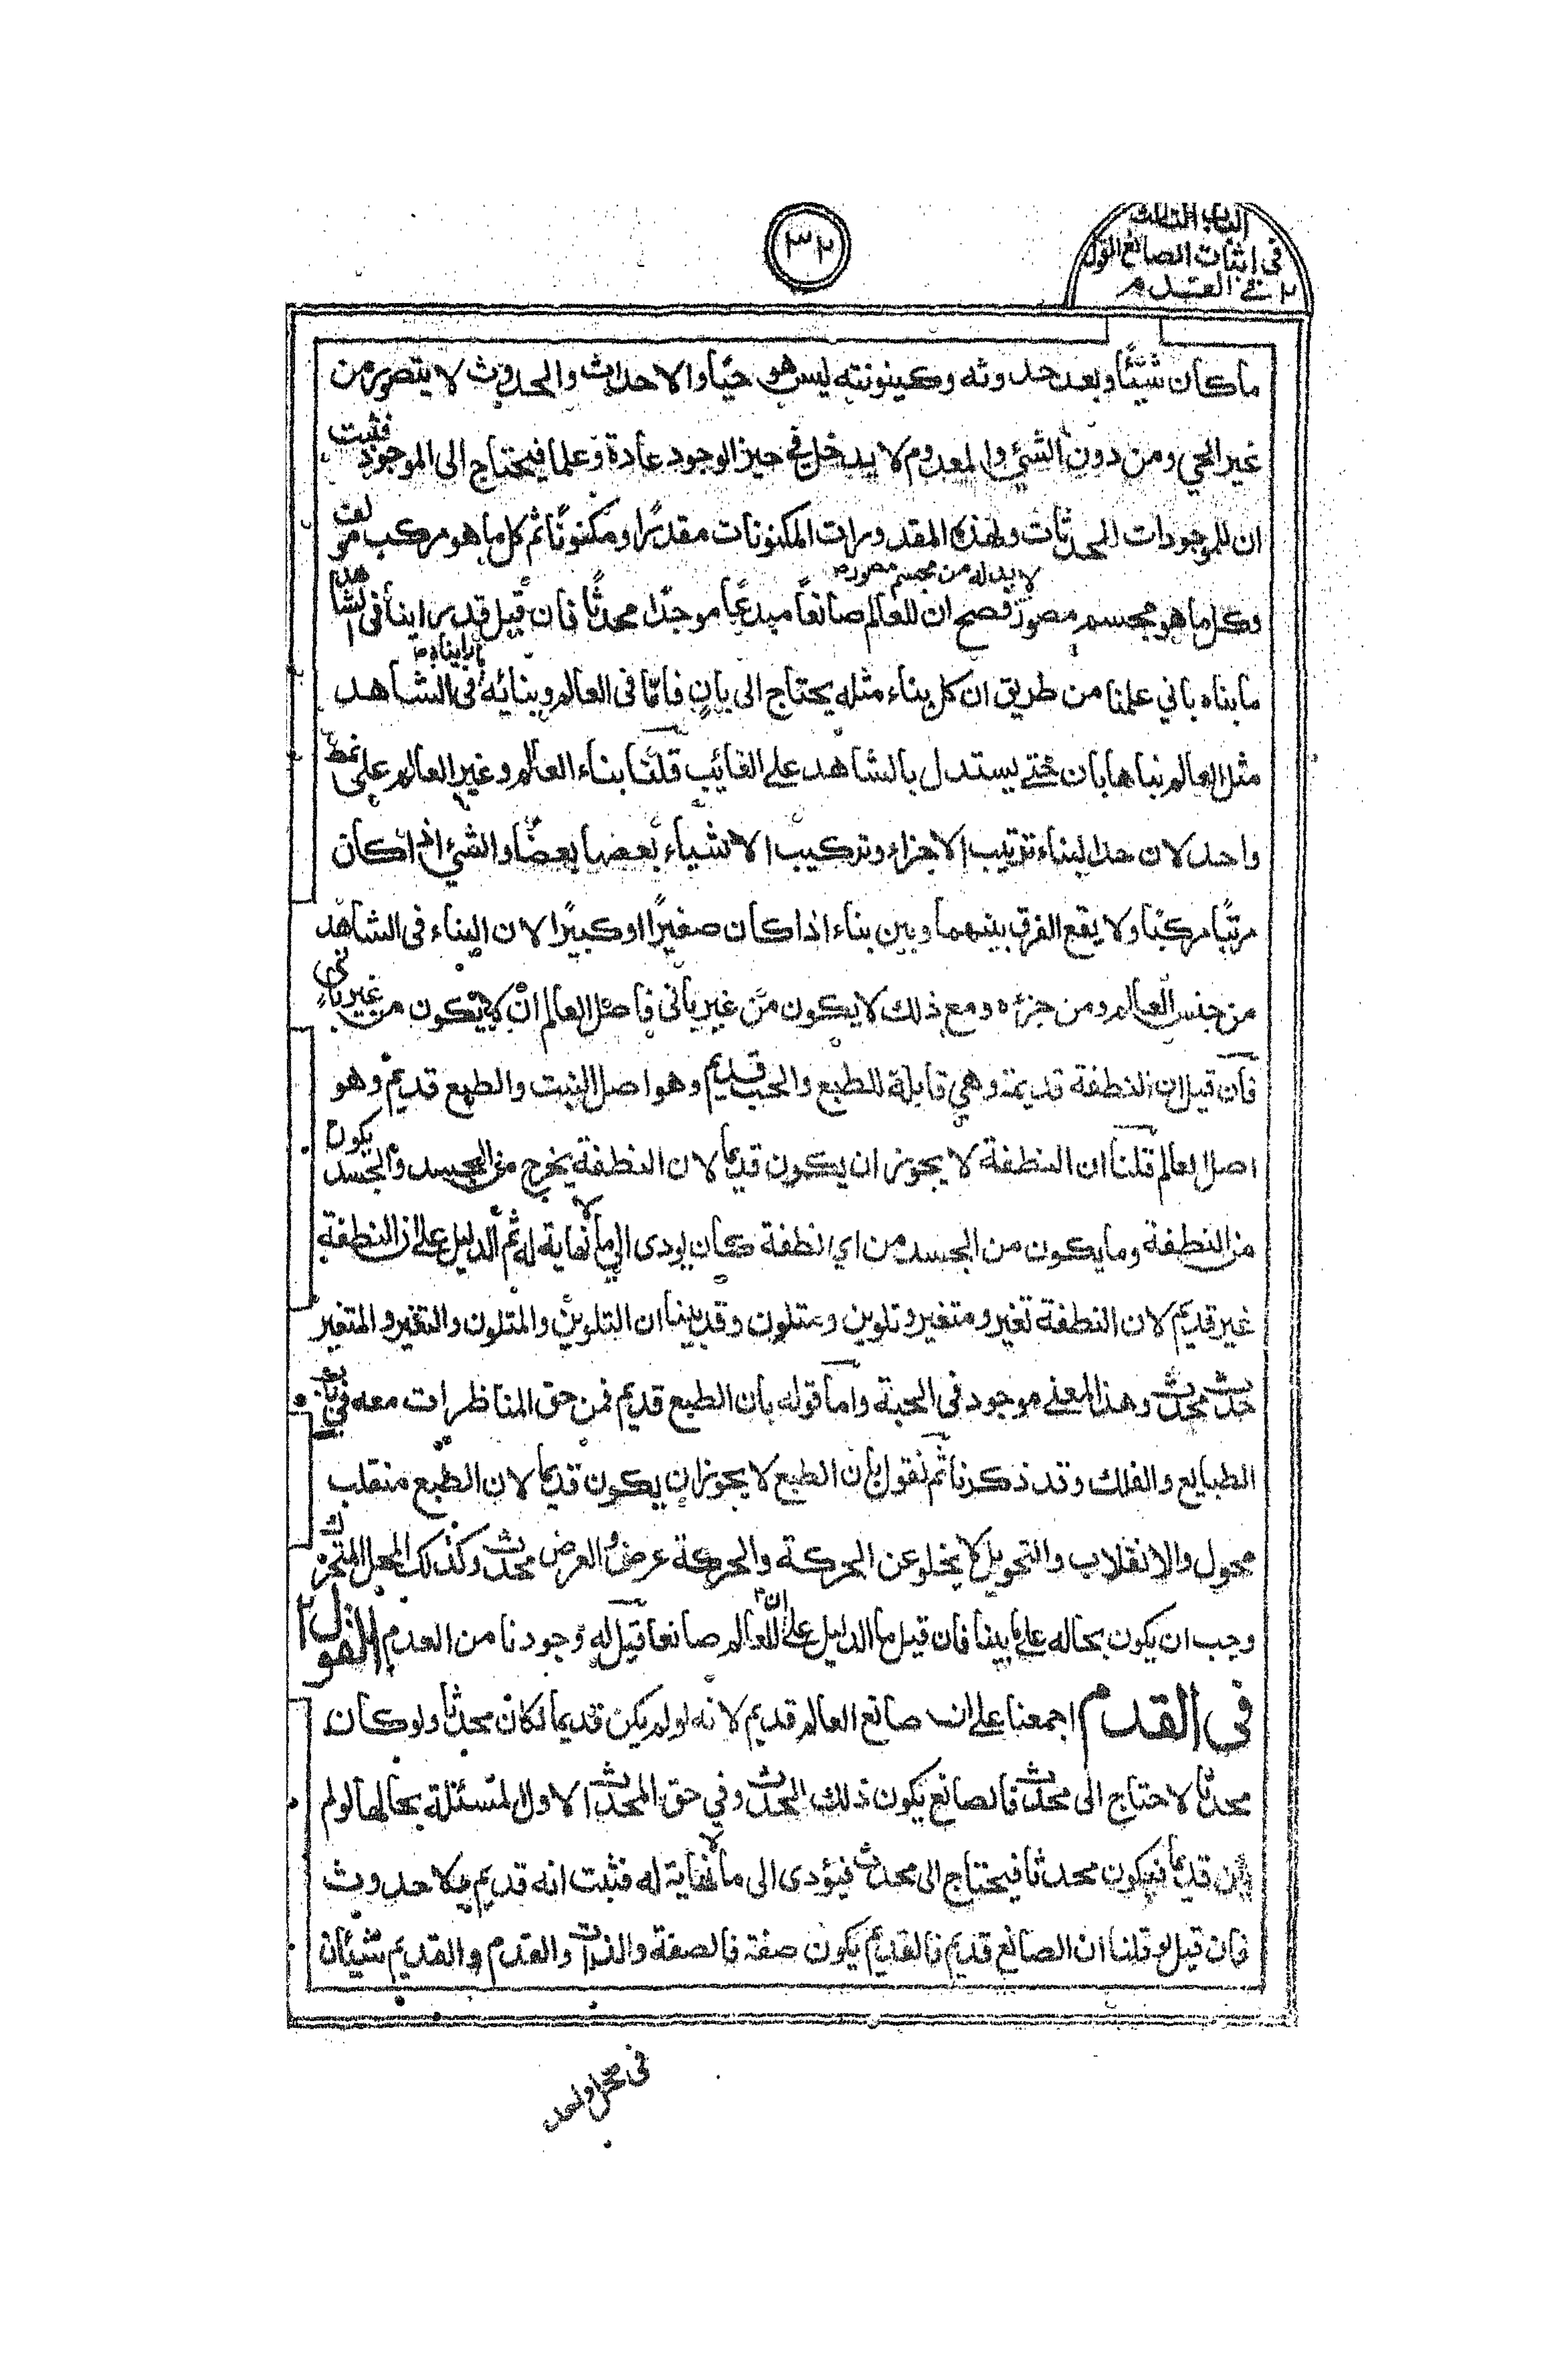 ٣٢
الباب الثالث
في اثبات الصانع القول
٢ في القدم
ما كان شيئًا وبعد حدوثه وكينونته ليس هو حيّا والاحداث والحدوث لا يتصور من
غير الحي ومن دون الشئ والمعدوم لا يدخل في حيز الوجود عادة وعلما فيحتاج الى الموجود فثبت
ان للموجودات المحدثات ولهذه المقدورات المكنونات مقدرًا ومكنونًا ثم كل ما هو مركب مولف
لا بد له من مجسم مصور
وكل ما هو مجسم مصوّر فصح ان للعالم صانعاً مبدعًا موجدًا محدثًا فان قيل قد راينا في الشاهد
ما بناه باني علمنا من طريق ان كل بناء مثله يحتاج الى بانٍ فامّا في العالم وبنائه في الشاهد
مثل العالم بناها بان حتى يستدل بالشاهد على الغائب قلنا بناء العالم وغير العالم على نمط
واحد لان حد البناء ترتيب الاجزاء وتركيب الاشياء بعضها بعضًا والشئ اذا كان
مرتبًا مركبًا ولا يقع الفرق بينهما وبين بناء اذا كان صغيرًا او كبيرًا لان البناء في الشاهد
من جنس العالم ومن جزءه ومع ذلك لا يكون من غير باني فاصل العالم ان لا يكون من غير باني
فان قيل ان النطفة قديمة وهي قابلة للطبع والحب قديم وهو اصل النبت والطبع قديم وهو
اصل العالم قلنا ان النطفة لا يجوز ان يكون قديما لان النطفة يخرج من الجسد والجسد يكون
من النطفة وما يكون من الجسد من اي نطفة كان يودى الى ما لا نهاية له ثم الدليل على ان النطفة
غير قديم لان النطفة تغير ومتغير وتلوين ومتلون وقد بينا ان التلوين والمتلون والتغير والمتغير
حدث محدث وهذا المعنى موجود في الحبة واما قوله بان الطبع قديم فمن حق المناظرات معه في
الطبايع والفلك وقد ذكرنا ثم نقول بان الطبع لا يجوز ان يكون قديما لان الطبع منقلب
محول والانقلاب والتحويل لا يخلو عن الحركة والحركة عرض والعرض محدث وكذلك المحل المتحرك
وجب ان يكون بحاله على ما بينا فان قيل ما الدليل على ان للعالم صانعا قيل له وجودنا من العدم القول ٢
في القدم اجمعنا على ان صانع العالم قديم لانه لو لم يكن قديما لكان محدثا ولو كان
محدثا لاحتاج الى محدث فالصانع يكون ذلك المحدث وفي حق المحدث الاول المسئلة بحالها لو لم
يكن قديما فيكون محدثا فيحتاج الى محدث فيؤدى الى ما لا نهاية له فثبت انه قديم بلا حدوث
فان قيل لو قلنا ان الصانع قديم فالقديم يكون صفة فالصفة والذات والقدم والقديم شيئان